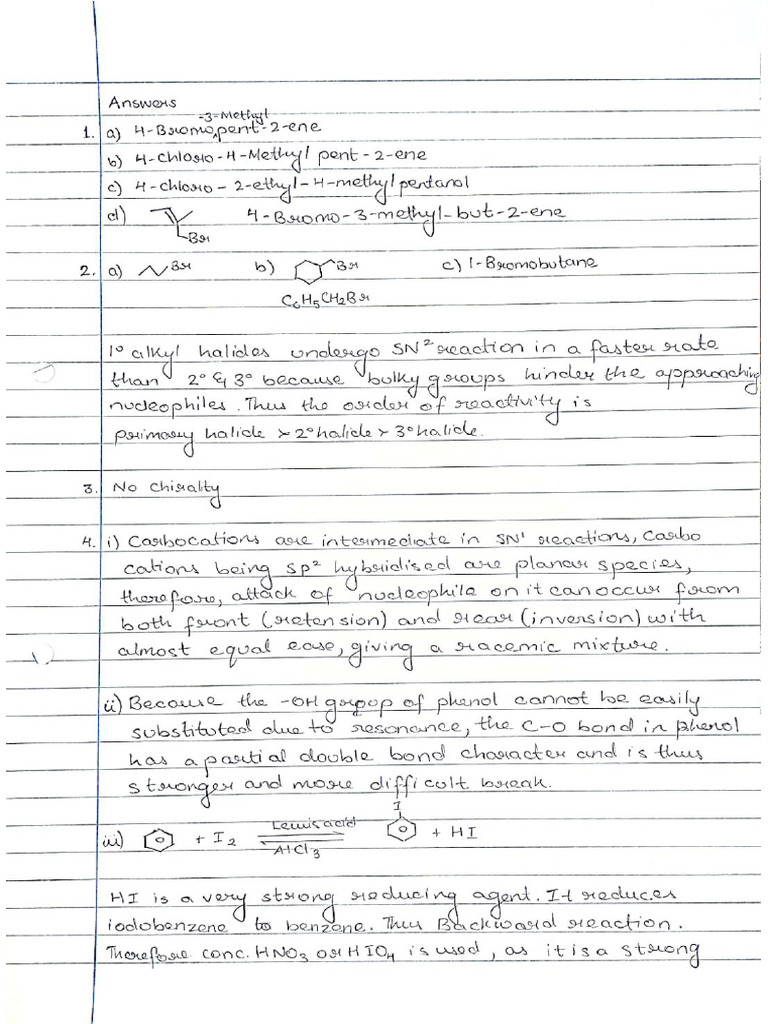 Answers
-3-Methyl
1. a) 4-Bromo^pent-2-ene
b) 4-chloro-4-Methyl pent-2-ene
c) 4-chloro-2-ethyl-4-methylpentanol
d) Br 4-Bromo-3-methyl-but-2-ene
2. a) Br b) Br c) 1-Bromobutane
C6H5CH2Br
1° alkyl halides undergo SN² reaction in a faster rate
than 2° & 3° because bulky groups hinder the approaching
nucleophiles. Thus the order of reactivity is
primary halide > 2° halide > 3° halide.
3. No Chirality
4. i) Carbocations are intermediate in SN¹ reactions, Carbo
cations being sp² hybridised are planar species,
therefore, attack of nucleophile on it can occur from
both front (retension) and rear (inversion) with
almost equal ease, giving a racemic mixture.
ii) Because the -OH group of phenol cannot be easily
substituted due to resonance, the C-O bond in phenol
has a partial double bond character and is thus
stronger and more difficult break.
I
iii) + I2 Lewis acid + HI
AlCl3
HI is a very strong reducing agent. It reduces
iodobenzene to benzene. Thus Backward reaction.
Therefore conc. HNO3 or HIO4 is used, as it is a strong